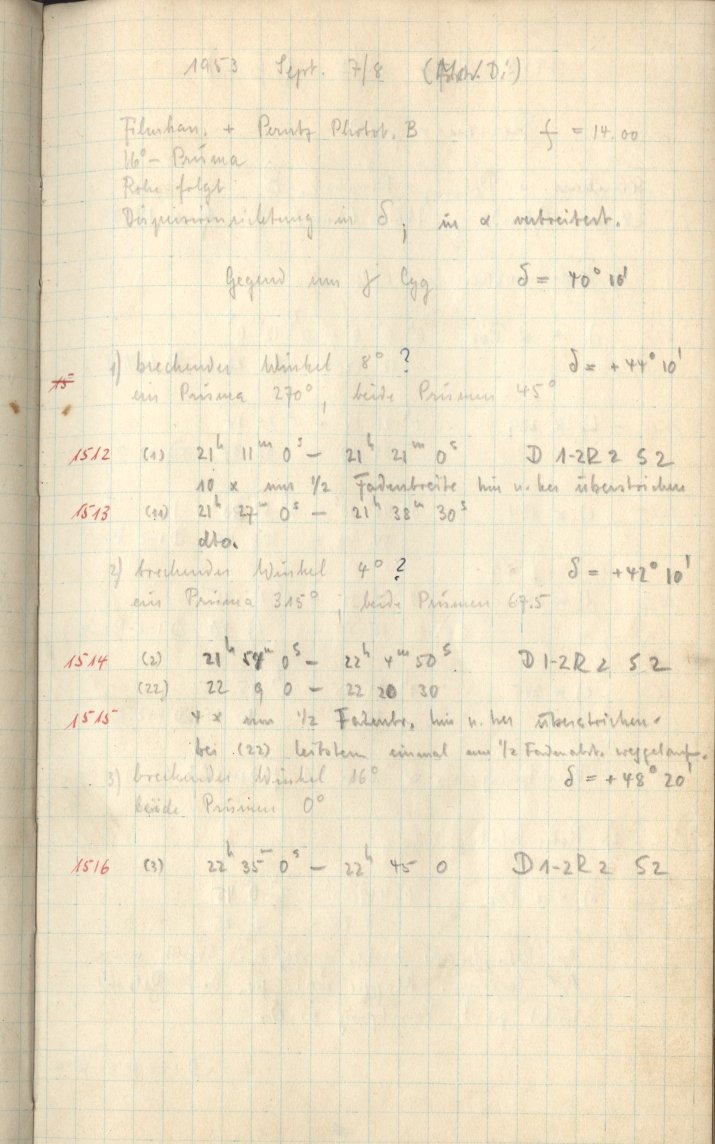 1953 Sept. 7/8 (
Filmhan. + Perutz Photob. B f = 14.00
16° – Prisma
Rohr folgt
Dispersionsrichtung in δ; in α verbreitert.
Gegend um γ Cyg δ = 40° 10'
1) brechender Winkel 8° ? δ = +44° 10'
15
ein Prisma 270°, beide Prismen 45°
1512 (1) 21h 11m 0s – 21h 21m 0s D 1-2 R 2 S 2
10 x um 1/2 Fadenbreite hin u. her überstrichen
1513 (11) 21h 27m 0s – 21h 38m 30s
dto.
2) brechender Winkel 4° ? δ = +42° 10'
ein Prisma 315°; beide Prismen 67.5
1514 (2) 21h 54m 0s – 22h 4m 50s D 1-2 R 2 S 2
(22) 22 9 0 – 22 20 30
1515 4 x um 1/2 Fadenbr. hin u. her überstrichen.
bei (22) einmal um 1/2 Fadenabst. weggelauf.
3) brechender Winkel 16° δ = +48° 20'
beide Prismen 0°
1516 (3) 22h 35m 0s – 22h 45 0 D 1-2 R 2 S 2